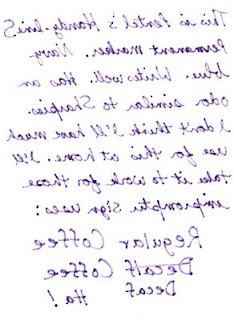 This is Pentel's Handy-lineS
Permanent marker. Navy
blue. Writes well. Has an
odor similar to Sharpies.
I don't think I'll have much
use for this at home. I'll
take it to work for those
impromptu sign uses:
Regular Coffee
Decaf Coffee
Decaf
Ha!